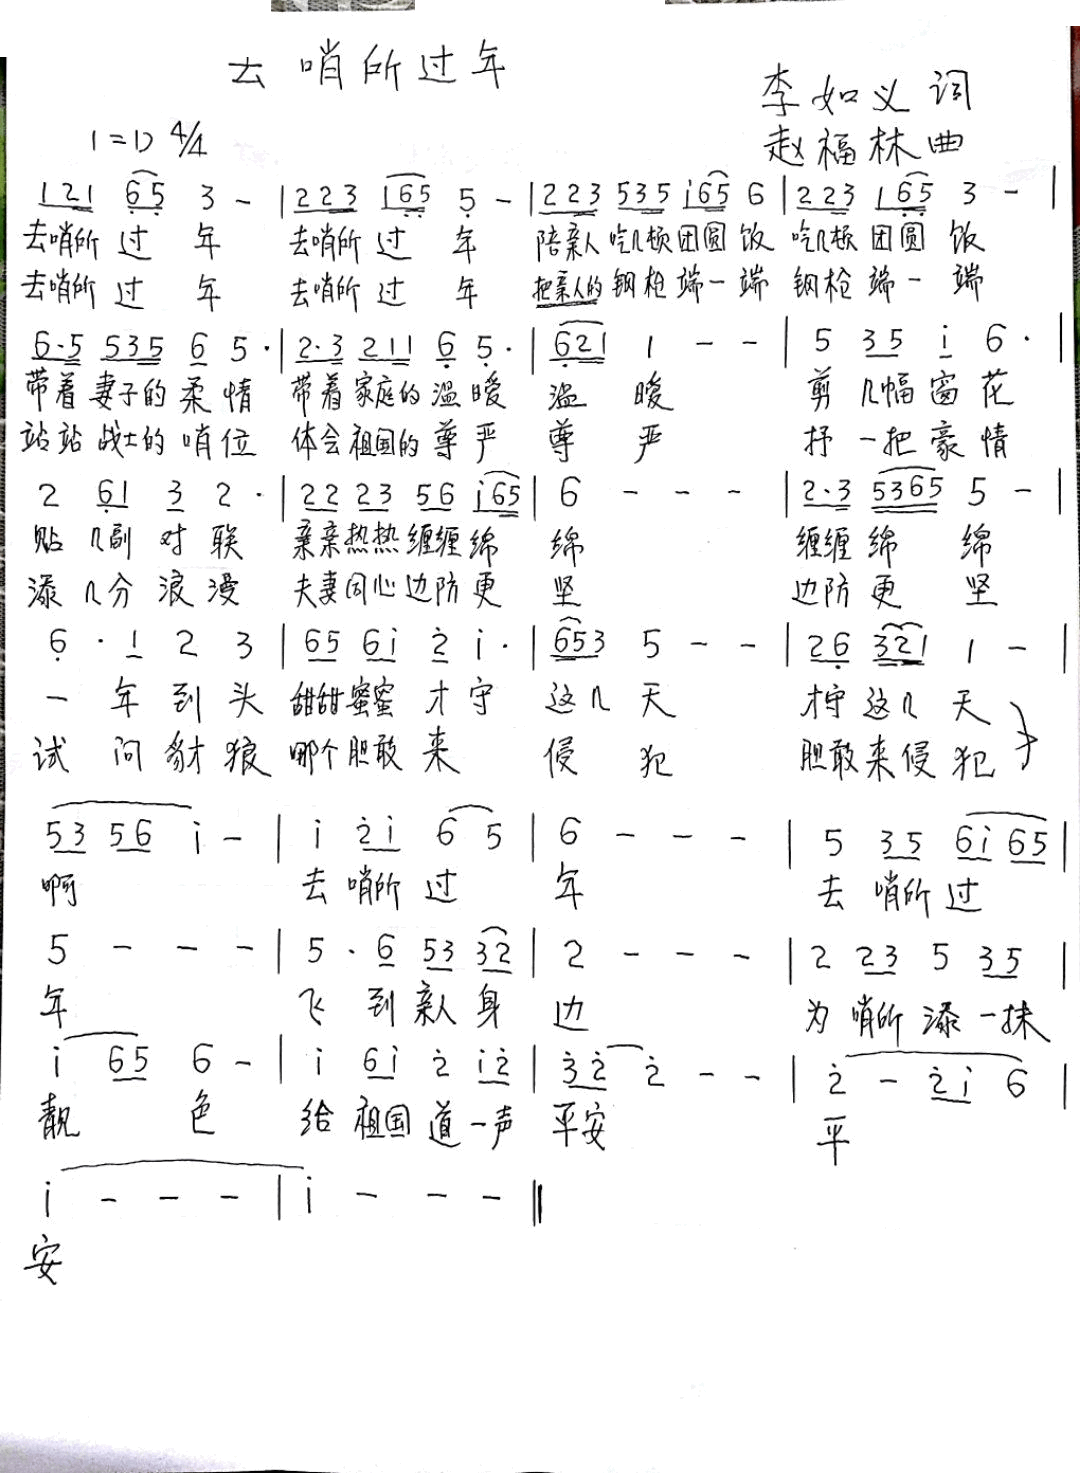 去哨所过年
李如义 词
1=D 4/4
赵福林 曲
1 2 1 6 5 3 - | 2 2 3 1 6 5 5 - | 2 2 3 5 3 5 i 6 5 6 | 2 2 3 1 6 5 3 - |
去哨所 过 年 去哨所 过 年 陪亲人 吃几顿 团圆 饭 吃几顿 团圆 饭
去哨所 过 年 去哨所 过 年 把亲人的 钢枪 端一端 钢枪 端一端
6·5 5 3 5 6 5· | 2·3 2 1 1 6 5· | 6 2 1 1 - - | 5 3 5 i 6· |
带着 妻子的 柔 情 带着 家庭的 温暖 温 暖 剪 几幅 窗 花
站站 战士的 哨位 体会 祖国的 尊严 尊 严 抒 一把 豪情
2 6 1 3 2· | 2 2 2 3 5 6 i 6 5 | 6 - - - | 2·3 5 3 6 5 5 - |
贴 几副 对 联 亲亲热热 缠缠绵 绵 缠缠绵 绵
添 几分 浪漫 夫妻同心 边防更 坚 边防更 坚
6· 1 2 3 | 6 5 6 i 2 i· | 6 5 3 5 - - | 2 6 3 2 1 1 - |
一 年 到 头 甜甜蜜蜜 才守 这几 天 才守 这几 天
试 问 豺狼 哪个胆敢 来 侵 犯 胆敢来侵犯
5 3 5 6 i - | i 2 i 6 5 | 6 - - - | 5 3 5 6 i 6 5 |
啊 去 哨所 过 年 去 哨所 过
5 - - - | 5· 6 5 3 3 2 | 2 - - - | 2 2 3 5 3 5 |
年 飞 到 亲人 身 边 为 哨所 添 一抹
i 6 5 6 - | i 6 i 2 i 2 | 3 2 2 - - | 2 - 2 i 6 |
靓 色 给 祖国 道 一声 平安 平
i - - - | i - - - ‖
安